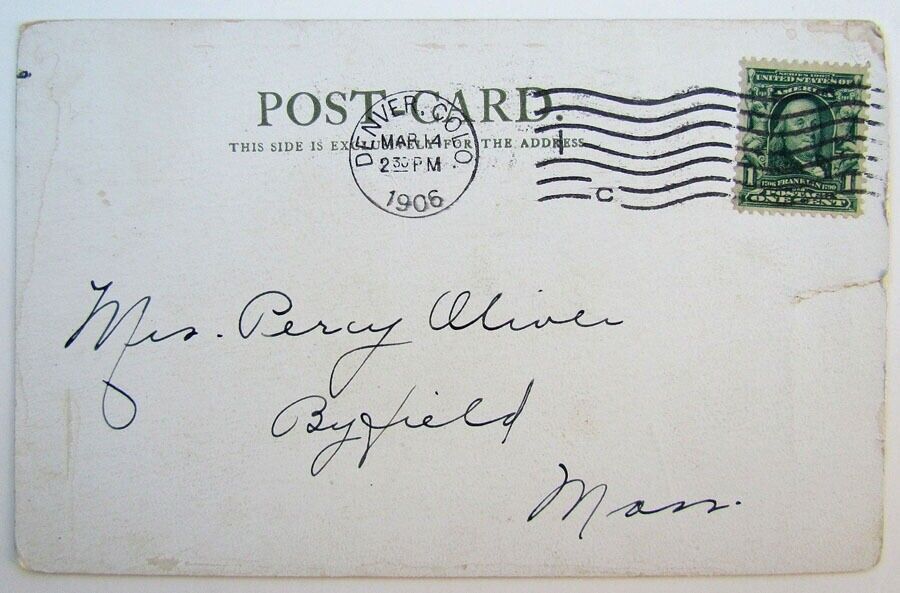 POST CARD.
THIS SIDE IS EXCLUSIVELY FOR THE ADDRESS
DENVER, COLO.
MAR 14
2 30 PM
1906
C
SERIES 1902
UNITED STATES OF
AMERICA
1 1706 FRANKLIN 1790 1
POSTAGE
ONE CENT
Mrs. Percy Oliver
Byfield
Mass.